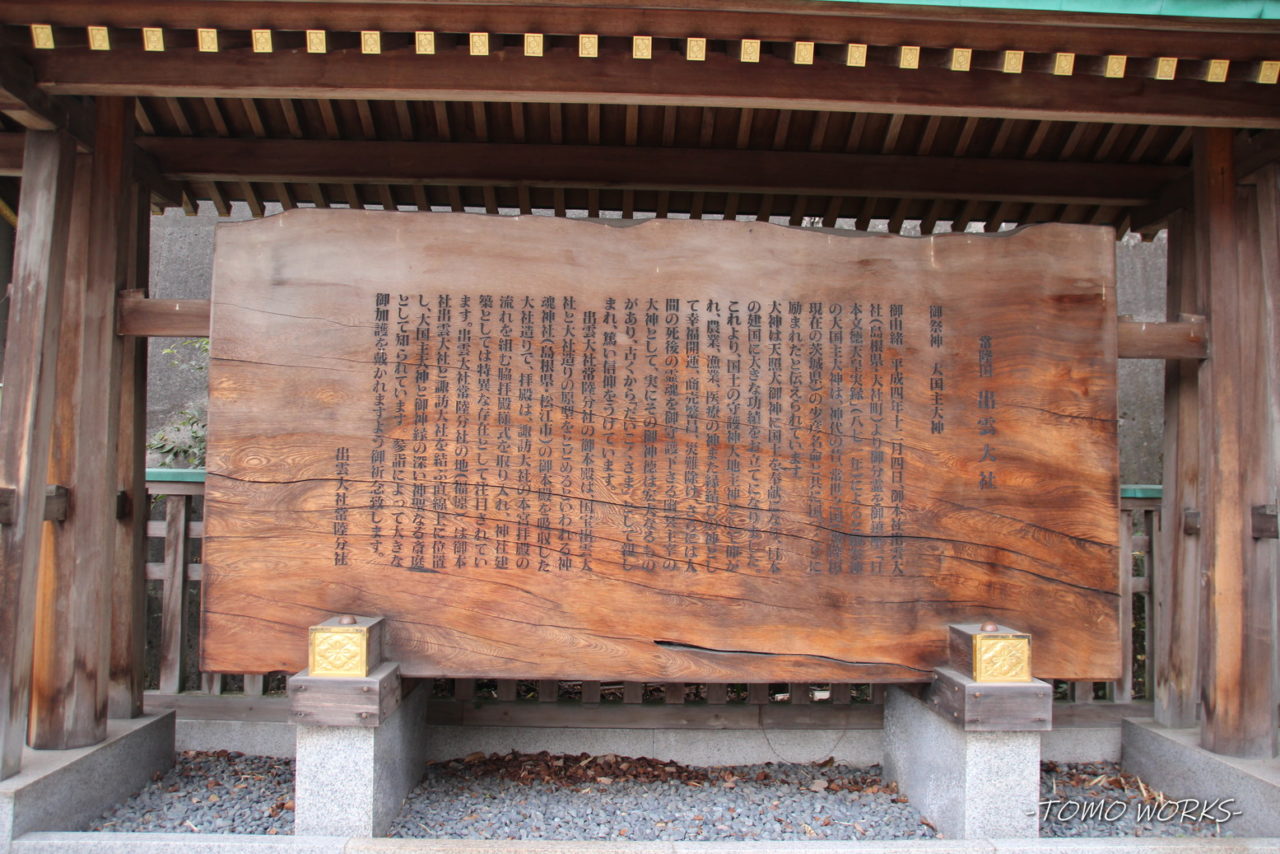 常陸国 出雲大社
御祭神 大国主大神
御由緒 平成四年十二月四日御本社出雲大
社(島根県・大社町)より御分霊を御鎮
の大国主大神は、神代の昔、常
現在の茨城県)の少彦名命と共に国
励まれたと伝えられています。
大神は天照大御神に国土を奉献になり、日本
の建国に大きな功績をお立てになりました。
これより、国土の守護神大地主神として仰が
れ、農業、漁業、医療の神また縁結びの神とし
て幸福開運、商売繁昌、災難除け、さらには人
間の死後の霊魂を御守護下さる幽冥主宰の
大神として、実にその御神徳は宏大なるもの
があり、古くから「だいこくさま」として親し
まれ、篤い信仰をうけています。
出雲大社常陸分社の御本殿は、国宝出雲大
社と大社造りの原型をとどめるといわれる神
魂神社(島根県・松江市)の御本殿を吸収した
大社造りで、拝殿は、諏訪大社の本宮拝殿の
流れを組む脇拝殿様式を取り入れ、神社建
築としては特異な存在として注目されてい
ます。出雲大社常陸分社の地(福原)は御本
社出雲大社と諏訪大社を結ぶ直線上に位置
し、大国主大神と御神縁の深い神聖なる斎庭
として知られています。参詣によって大きな
御加護を戴かれますよう御祈念致します。
出雲大社常陸分社
-TOMO WORKS-